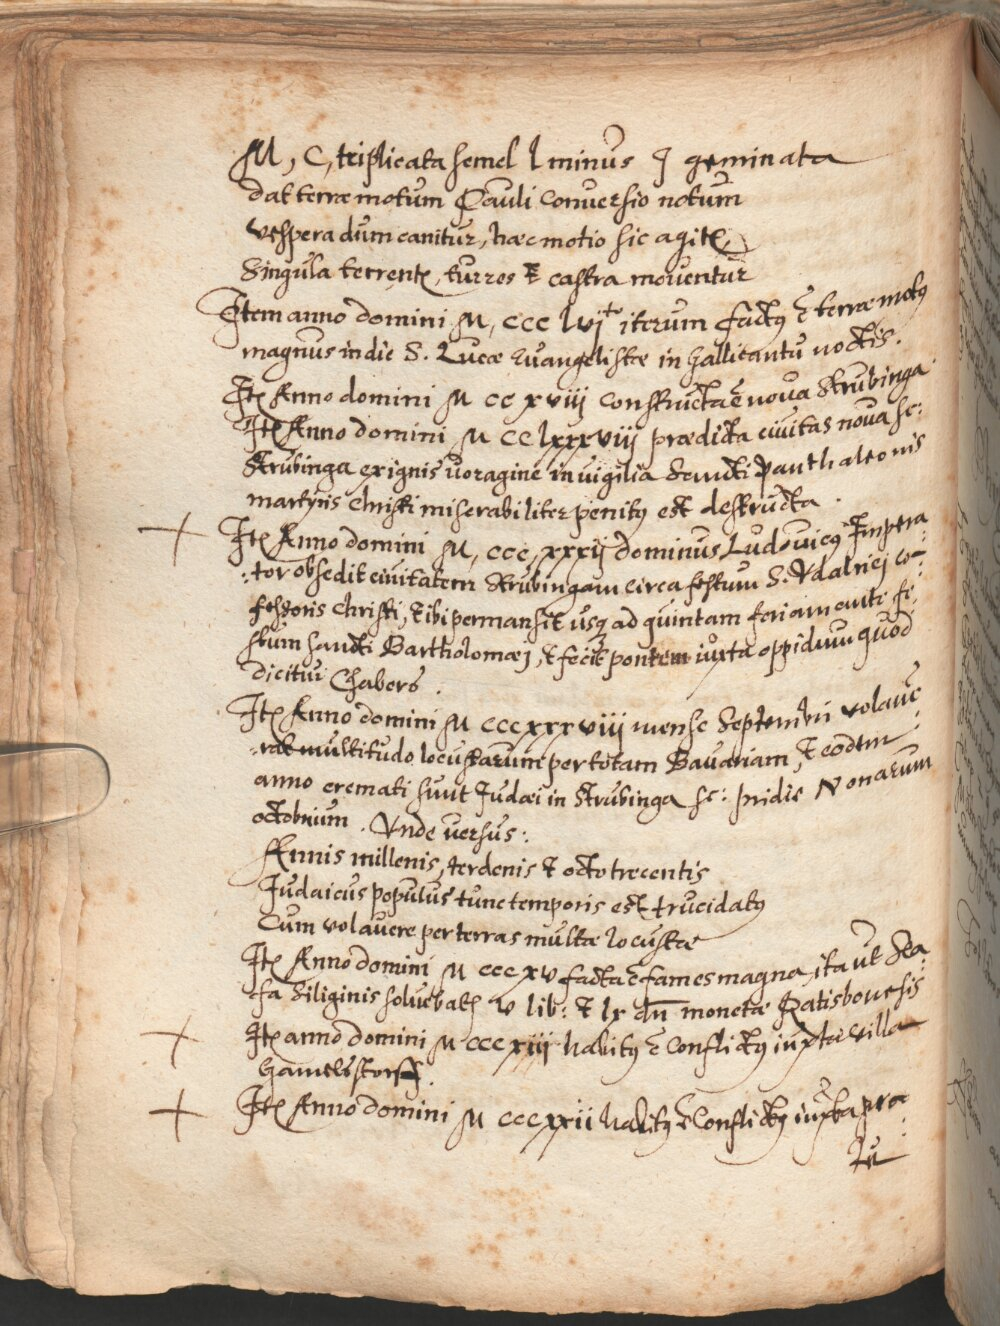 M, C, triplicata semel l minus I geminata
dat terræ motum Pauli Conversio notum
vespera dum canitur, hæc motio sic agitꝫ
Singula terrentꝫ, turres & castra moventur
Item anno domini M, CCC lvj iterum factꝯ ē terræ motꝯ
magnus in die S. Lucæ Evangelistæ in gallicantu noctis.
Itꝫ Anno domini M CC xviij Constructa ē nova Strubinga
Itꝫ Anno domini M CC lxxxviij prædicta civitas nova sc:
Strubinga ex ignis voragine in vigilia Sancti Panthaleonis
martyris Christi miserabiliter penitꝯ est destructa.
Itꝫ Anno domini M, CCC, xxxij dominus Ludovicꝯ Impera
:tor obsedit civitatem Strubingam circa festum S. Vdalricj co-
fessoris Christi, & ibi permansit usqꝫ ad quintam feriam ante fe:
stum sancti Bartholomæj, & fecit pontem iuxta oppidum quod
dicitur Chabers.
Itꝫ Anno domini M CCCxxxviij mense Septembri volaue
:rat multitudo locustarum per totam Bavariam, & eodem
anno cremati sunt Iudæi in Strubinga sc: pridie Nonarum
octobrium. Vnde versus:
Annis millenis, terdenis & octo trecentis
Iudaicus populus tunc temporis est trucidatꝯ
Cum volavere per terras multæ locustæ
Itꝫ Anno domini M CCC xv facta ē fames magna, ita ut Sca
fa Siliginis solvebatꝫ v lib: & lx dn̄ monetæ Ratisbonensis
Itꝫ anno domini M CCC xiij habitꝯ ē Conflictꝯ iuxta villa
Gamelsstorff.
Itꝫ Anno domini M CCCxxii habitꝯ ē Conflictꝯ iuxta pra